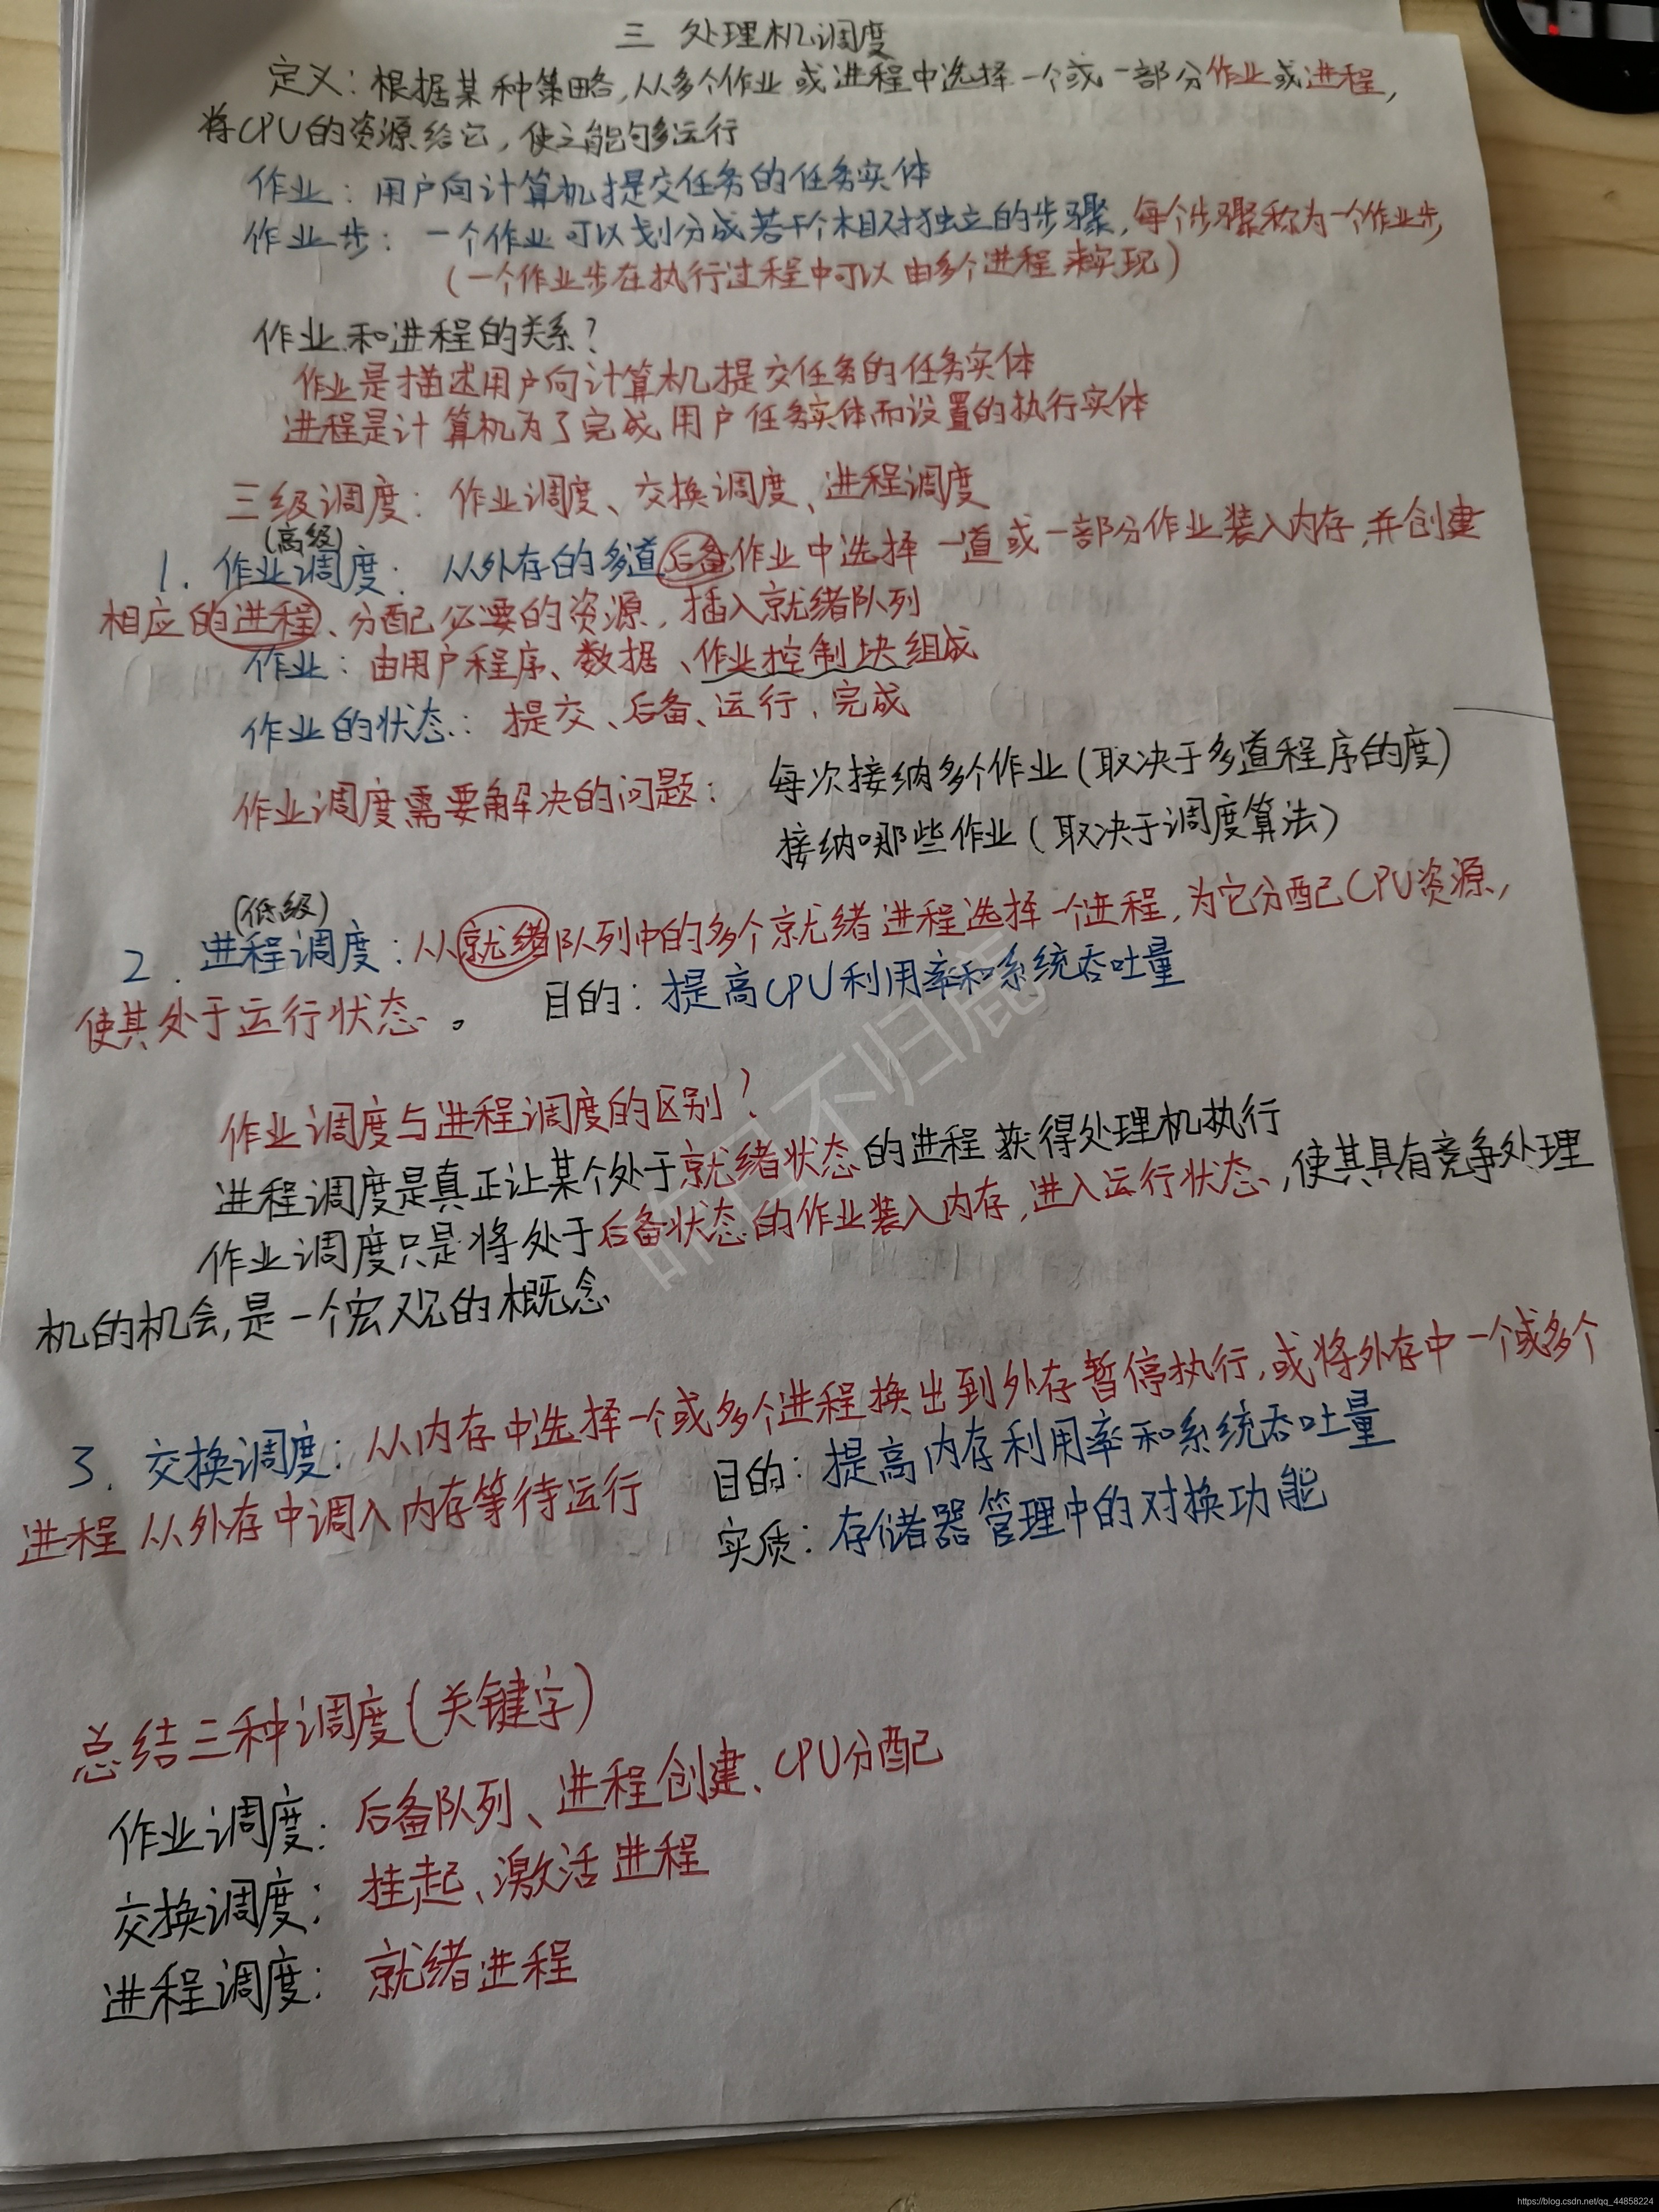 三 处理机调度
定义：根据某种策略，从多个作业或进程中选择一个或一部分作业或进程，
将CPU的资源给它，使之能够多运行
作业：用户向计算机提交任务的任务实体
作业步：一个作业可以划分成若干个相对独立的步骤，每个步骤称为一个作业步，
（一个作业步在执行过程中可以由多个进程来实现）
作业和进程的关系？
作业是描述用户向计算机提交任务的任务实体
进程是计算机为了完成用户任务实体而设置的执行实体
三级调度：作业调度、交换调度、进程调度
（高级）
1. 作业调度：从外存的多道后备作业中选择一道或一部分作业装入内存，并创建
相应的进程、分配必要的资源，插入就绪队列
作业：由用户程序、数据、作业控制块组成
作业的状态：提交、后备、运行、完成
作业调度需要解决的问题：每次接纳多个作业（取决于多道程序的度）
接纳哪些作业（取决于调度算法）
（低级）
2. 进程调度：从就绪队列中的多个就绪进程选择一个进程，为它分配CPU资源，
使其处于运行状态。 目的：提高CPU利用率和系统吞吐量
作业调度与进程调度的区别？
进程调度是真正让某个处于就绪状态的进程获得处理机执行
作业调度只是将处于后备状态的作业装入内存，进入运行状态，使其具有竞争处理
机的机会，是一个宏观的概念
3. 交换调度：从内存中选择一个或多个进程换出到外存暂停执行，或将外存中一个或多个
进程从外存中调入内存等待运行 目的：提高内存利用率和系统吞吐量
实质：存储器管理中的对换功能
总结三种调度（关键字）
作业调度：后备队列、进程创建、CPU分配
交换调度：挂起、激活进程
进程调度：就绪进程
昨日不归鹿
https://blog.csdn.net/qq_44858224